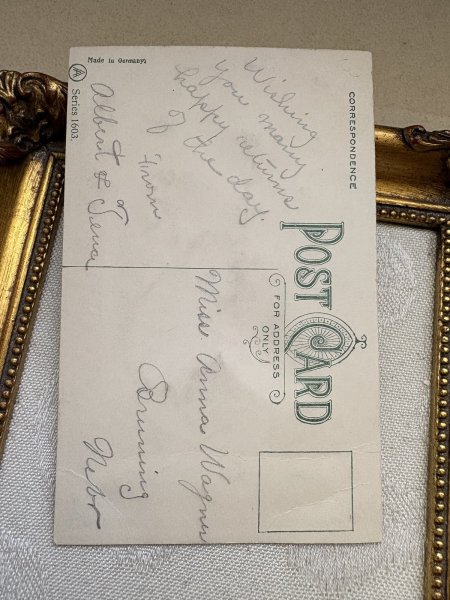 CORRESPONDENCE
POST CARD
FOR ADDRESS
ONLY
Wishing
you many
happy returns
of the day.
From
Albert & Lena
Miss. Anna Wagner
Bruning
Nebr
Made in Germany
Series 1603.